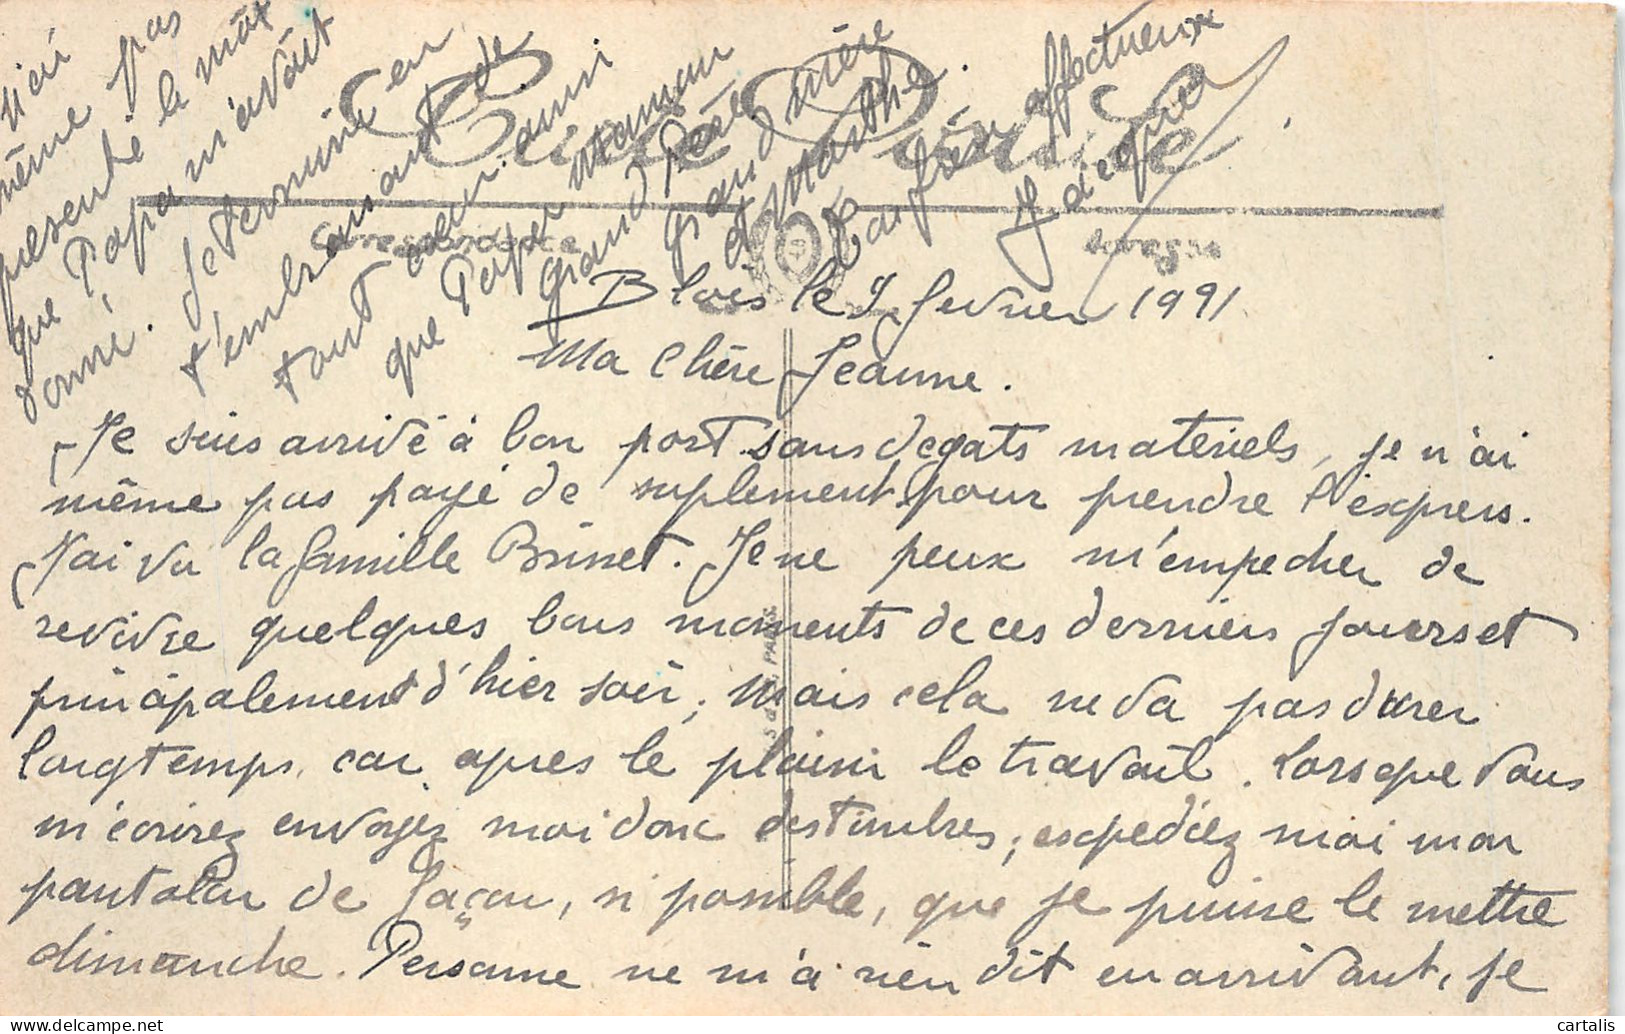 Carte Postale
Correspondance
Blois le 9 fevrier 1991
Ma Chère Jeanne.
Je suis arrivé à bon port sans degats matériels, je n'ai
même pas payé de suplement pour prendre l'express.
J'ai vu la famille Brinet. Je ne peux m'empecher de
revivre quelques bons moments de ces derniers jours et
principalement d'hier soir, mais cela ne va pas durer
longtemps, car après le plaisir le travail. Lorsque vous
m'écrirez envoyez moi donc des timbres, expédiez moi mon
pantalon de façon, si possible, que je puisse le mettre
dimanche. Personne ne m'a rien dit en arrivant, je
n'ai
même pas
presenté le mot
que Papa m'avait
donné. Je termine en
t'embrassant de
tout cœur ainsi
que Papa Maman
grand Père
grand mère
et Marthe.
Ton frère affectueux
Jacques
PARIS
cartalis
www.delcampe.net